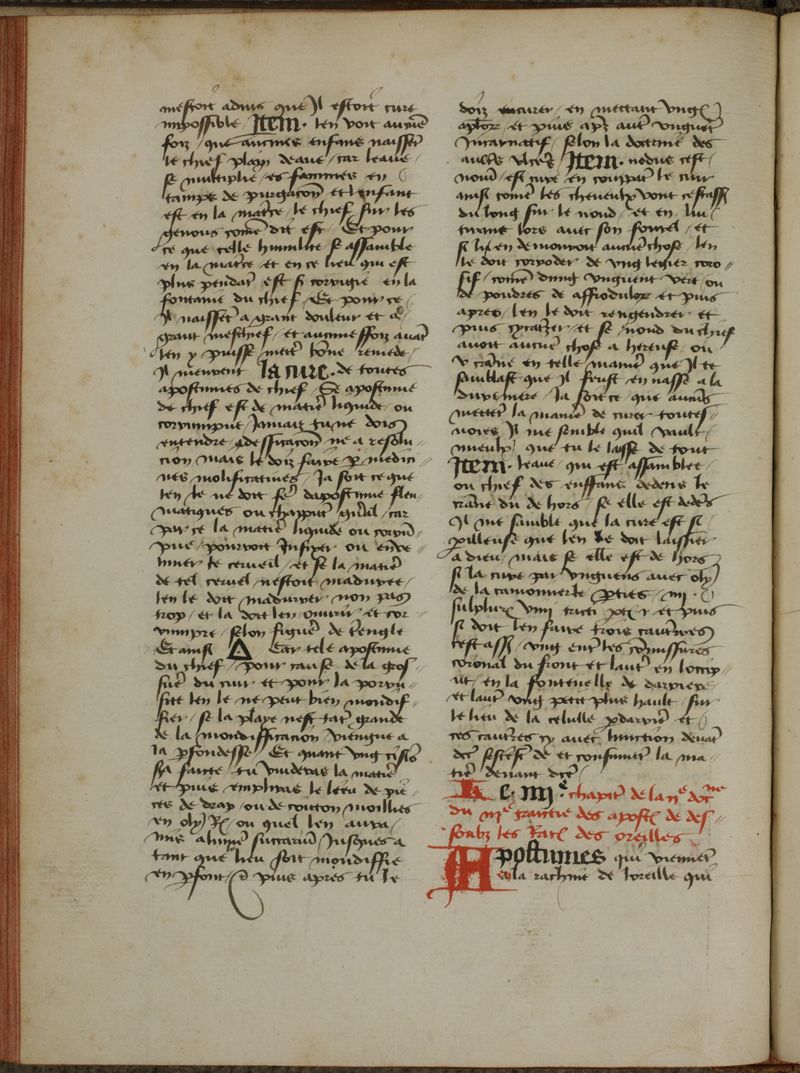 mestoit aduis que Il estoit cure
impossible Item. len voit aucune
foiz que aucuns enfans naissent
le chief plain deaue / car leaue /
se multiplie / es femmes en
tamps de purgacon et lenfant
est en la matrice le chief sur les
genous come dit est / Et pour
ce que telle humidite se assamble
en la matrice et en ce lieu qui est
plus pendant est si corrigie en la
fontaine du chief / Et pour ce /
Il naisset a grant douleur et a
grant meschief / et aucuneffoiz auant
len y puisse mettre bone remede /
Il meurent la cure. de toutes
apostumes de chief Se apostume
de chief est de matiere liquide / ou
corrumpue Iamais tu ne dois
entendre adessicacon ne a resolu-
cion mais le doiz faire par medici-
nes molificatiues / Ia soit ce que
len le ne doit fere dapostume fleu-
matiques ou chapparer quil / car
par ce la matiere liquide ou corrum-
pue / pourroit Infixer ou enue-
nimer le cerueil / et se la matiere
de tel ceruel nestoit maduree /
len le doit madurer non pas
trop / et la doit len ouurir et cor-
rumpre / selon figure de triengle
Et ainsi Δ Car tele apostume
du chief / pour cause de la gros-
sure du cuir et pour la porru-
site len le ne peut bien mondif-
fier / se la playe nest tant grande
de la mondifficacion viengne a
la profondesse Et quant vng cysio
sera faicte tu vuideras la matiere
et puis empliras le lieu de pie-
ces de drap / ou de couton moillies
en oly R. ou quel len aura /
mis alumen succarum Iusques a
tant que lieu soit mondiffie
en profont / et puis apres tu le
doiz encurer / en mettant vng
apostor / et puis apres autre vnguent
Incarnatif / selon la doctrine des
autres vlceres Item. nodus cest /
nom / est cure en coupant le cuir
ainsi come les cheueulx vont cestassauoir
du long sur le noud / et en luy
tirant hors auec son fourrel / et
si lis en demouroit aucune chose / len
le doit corroder de vng legier coro-
sif / come dung vnguent vert / ou
de pouldres de affrodulor et puis
apres / len le doit rengendrer et
puis cycatrizer et se noud du chief
auoit aucune chose a herense ou
v crane en telle maniere que Il te
samblast que Il feust en nasse a la
dure mere / Ia soit ce / que aucuns
mettent la maniere de curer toutes-
uoies Il me semble quil vault /
mieulx que tu le laisse de tout
Item. leaue / qui est assamblee /
ou chief des enffans dedens le
crane du de hors / Se elle est dedens
Il me samble que la cure est si
perilleuse que len le doit laissier
a dieu / mais se elle est de hors
si la cure par vnguens auec oly
de la camomille parties .iii.
sulphur viui triti pars r et puis
si doit len faire trois cauteres
cestassauoir / vng entre les comissures
coronal du front et lautre en loccip-
ut / en la fontenelle de darriere
et lautre vng petit plus hault / sur
le lieu de la cellule pdarriere et
ces cauteres cy auec lunction deuant
dicte sestes de et consumer la ma-
tiere deuant dicte
Le .iiij.e chapitre de la ije doctrine
du iije traictie des apostumes de des-
soubz les Racines des oreilles
Apostumes qui viennent
a la rachine de loreille qui